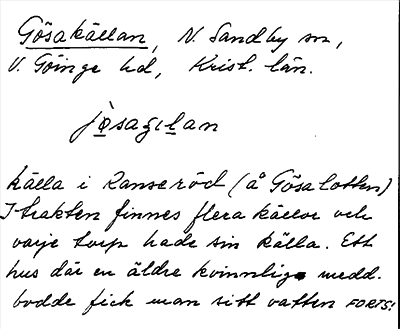 Gösakällan, N. Sandby sn,
V. Göinge hd, Krist. län.
jø̀sagɩlan
källa i Ranseröd (å Gösalotten)
I trakten finnes flera källor och
varje torp hade sin källa. Ett
hus där en äldre kvinnlig medd.
bodde fick man sitt vatten FORTS!